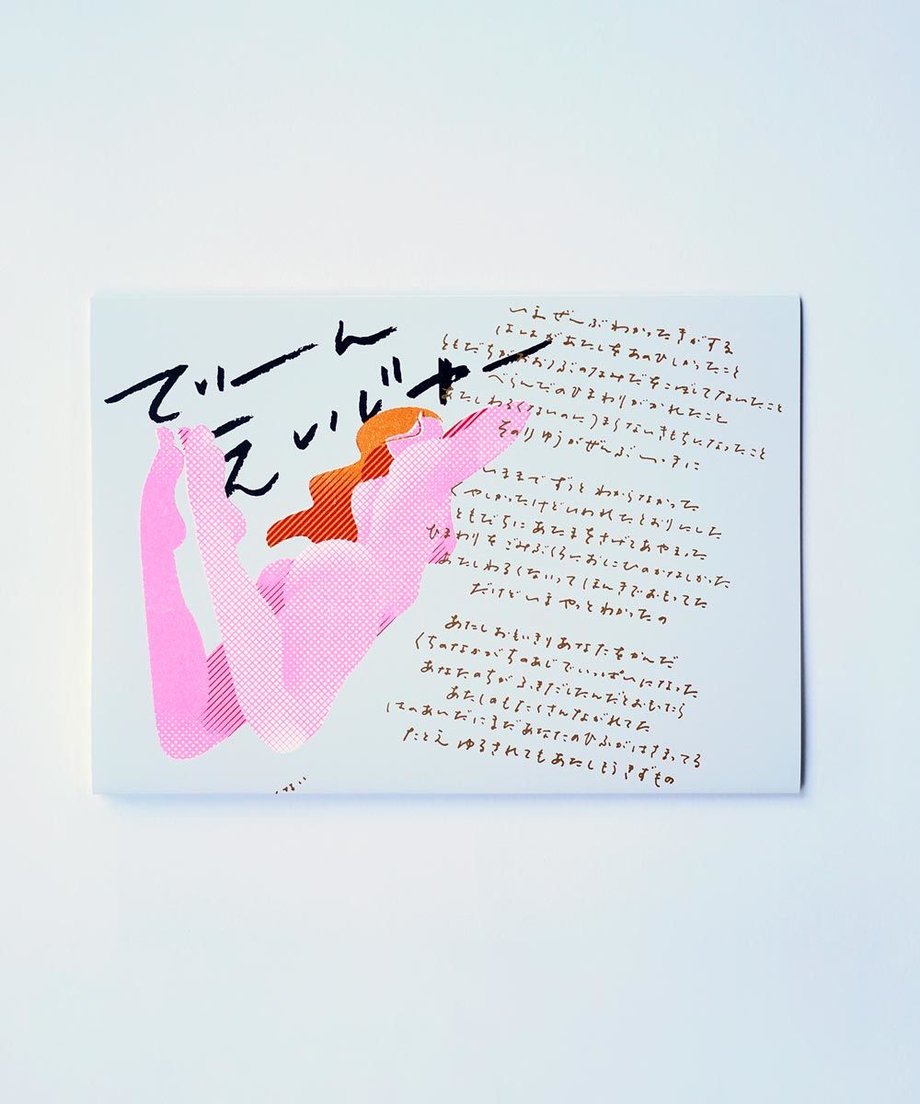 てぃーん
えいじゃー
いまぜーんぶわかったきがする
ははがあたしをあのひしかったこと
ともだちがおおつぶのなみだをこぼしてないたこと
べらんだのひまわりがかれたこと
あたしわるくないのにうまくないきもちになったこと
そのりゆうがぜんぶいっきに
いままでずっとわからなかった
くやしかったけどいわれたとおりにした
ともだちにあたまをさげてあやまった
ひまわりをごみぶくろにおしこむのかなしかった
あたしわるくないってほんきでおもってた
だけどいまやっとわかったの
あたしおもいきりあなたをかんだ
くちのなかがちのあじでいっぱいになった
あなたのちがふきだしたんだとおもったら
あたしのもたくさんながれてた
はのあいだにまだあなたのひふがはさまってる
たとえゆるされてもあたしもうきずもの